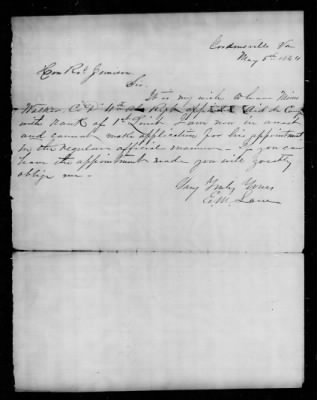 Gordonsville Va
May 5th 1864
Hon Robt Jemison
Sir
It is my wish to have Mims
Walker, Co. D. 4th Ala Regt appointed Aid de Camp
with Rank of 1st Lieut. I am now in arrest
and cannot make application for his appointment
in the regular official manner. If you can
have the appointment made you will greatly
oblige me.
Very Truly Yours
E. M. Law